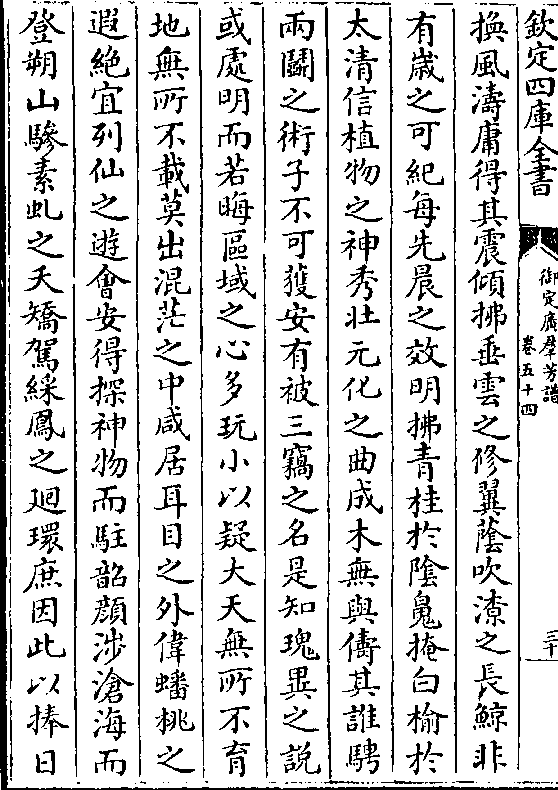 欽定四庫全書
御定廣羣芳譜
卷五十四
三十
換風濤庸得其震傾拂垂雲之修翼蔭吹潦之長鯨非
有歲之可紀每先晨之效明拂青桂於陰鳬掩白榆於
太清信植物之神秀壯元化之曲成木無與儔其誰騁
兩鬭之術子不可獲安有被三竊之名是知瑰異之說
或處明而若晦區域之心多玩小以疑大天無所不育
地無所不載莫出混茫之中咸居耳目之外偉蟠桃之
遐絶宜列仙之遊會安得探神物而駐韶顔涉滄海而
登朔山驂素虬之夭矯駕綵鳳之廻環庶因此以捧日